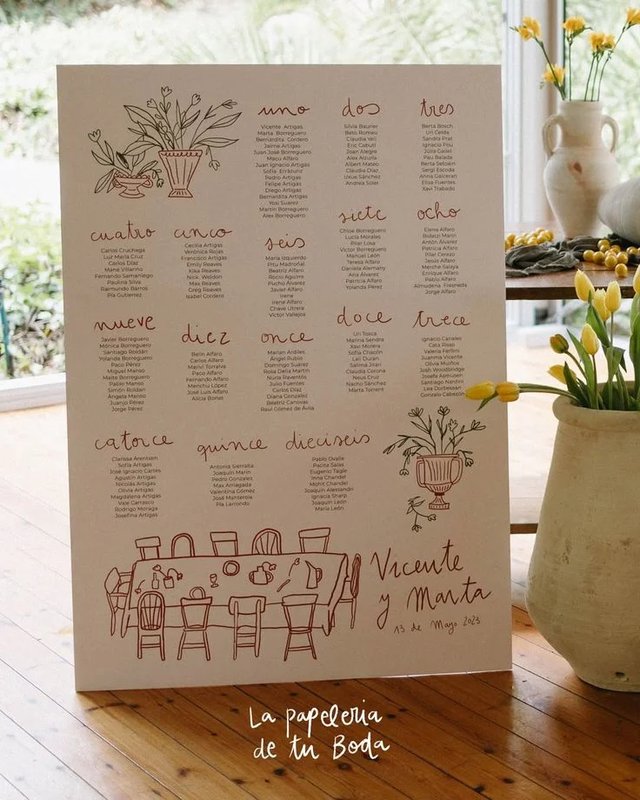 uno
Vicente Artigas
Marta Borreguero
Bernardita Cordero
Jaime Artigas
Juan José Borreguero
Macu Alfaro
Juan Ignacio Artigas
Sofía Errázuriz
Pedro Artigas
Felipe Artigas
Diego Artigas
Bernardita Artigas
Yosi Suárez
Martín Borreguero
Alex Borreguero
dos
Silvia Baurier
Beto Romeu
Claudia Veli
Eric Cabuti
Joan Alegre
Alex Arzulia
Albert Mateo
Claudia Díaz
Ictus Sánchez
Andrea Soler
tres
Berta Bosch
Uri Ceida
Sandra Prat
Ignacio Pou
Júlia Gaisel
Pau Balada
Berta Setoain
Sergi Escoda
Anna Galceran
Elisa Fuentes
Xavi Trabado
cuatro
Carlos Cruchaga
Luz María Cruz
Carlos Díaz
Mané Villarino
Fernando Samaniego
Paulina Silva
Raimundo Barros
Pía Gutierrez
cinco
Cecilia Artigas
Verónica Rojas
Francisco Artigas
Emily Reaves
Kika Reaves
Nick Weldon
Max Reaves
Greg Reaves
Isabel Cordero
seis
María Izquierdo
Pitu Madroñal
Beatriz Alfaro
Rocío Aguirre
Pucho Álvarez
Javier Alfaro
Irene
Irene Alfaro
Chave Utrera
Víctor Vallejos
siete
Chise Borreguero
Lucía Morales
Pilar Losa
Víctor Borreguero
Manuel León
Teresa Alfaro
Daniela Alemany
Ana Álvarez
Patricia Alfaro
Yolanda Pérez
ocho
Elena Alfaro
Bolaizi Marín
Antón Álvarez
Patricia Alfaro
Pilar Cerezo
Jesús Alfaro
Merche Salaya
Enrique Alfaro
Pablo Alfaro
Almudena Fresneda
Jorge Alfaro
nueve
Javier Borreguero
Mónica Borreguero
Santiago Roldán
Yolanda Borreguero
Paco Pérez
Miguel Manso
Maite Borreguero
Pablo Manso
Simón Roldán
Ángela Manso
Juanjo Pérez
Jorge Pérez
diez
Belin Alfaro
Carlos Alfaro
Merivi Torralva
Paco Alfaro
Fernando Alfaro
Menchu López
José Luis Alfaro
Alicia Bonet
once
Marian Ardiles
Ángel Rubio
Domingo Suárez
Rosa Celia Martín
Núria Raventós
Julio Fuentes
Carlos Díaz
Diana González
Beatriz Canovas
Raúl Gómez de Ávila
doce
Uri Tosca
Marina Sendra
Xavi Molera
Sofía Chacón
Lali Durán
Salima Jirari
Claudia Carona
Neus Cruz
Nacho Sánchez
Marta Torrent
trece
Ignacio Canales
Cata Riesi
Valeria Ferlini
Juanma Vicente
Olivia Muñoz
Josh Woodbridge
Josefa Aspiusen
Santiago Nentin
Lea Dortessan
Gonzalo Cabezón
catorce
Clarissa Arentzen
Sofía Artigas
José Ignacio Carles
Agustín Artigas
Nicolás Artigas
Olivia Artigas
Magdalena Artigas
Vale Carrasco
Rodrigo Moraga
Josefina Artigas
quince
Antonia Sierralta
Joaquín Marin
Pedro Gonzalez
Max Arriagada
Valentina Gómez
José Manterola
Pía Larrondo
dieciseis
Pablo Ovalle
Pacita Salas
Eugenio Tagle
Inna Chandel
Mohit Chandel
Joaquín Alessandri
Ignacia Sharp
Joaquín León
María León
Vicente
y Marta
13 de Mayo 2023
La papeleria
de tu Boda